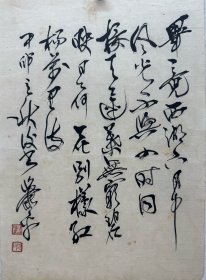 毕竟西湖六月中
风光不与四时同
接天莲叶无穷碧
映日荷花别样红
杨万里诗